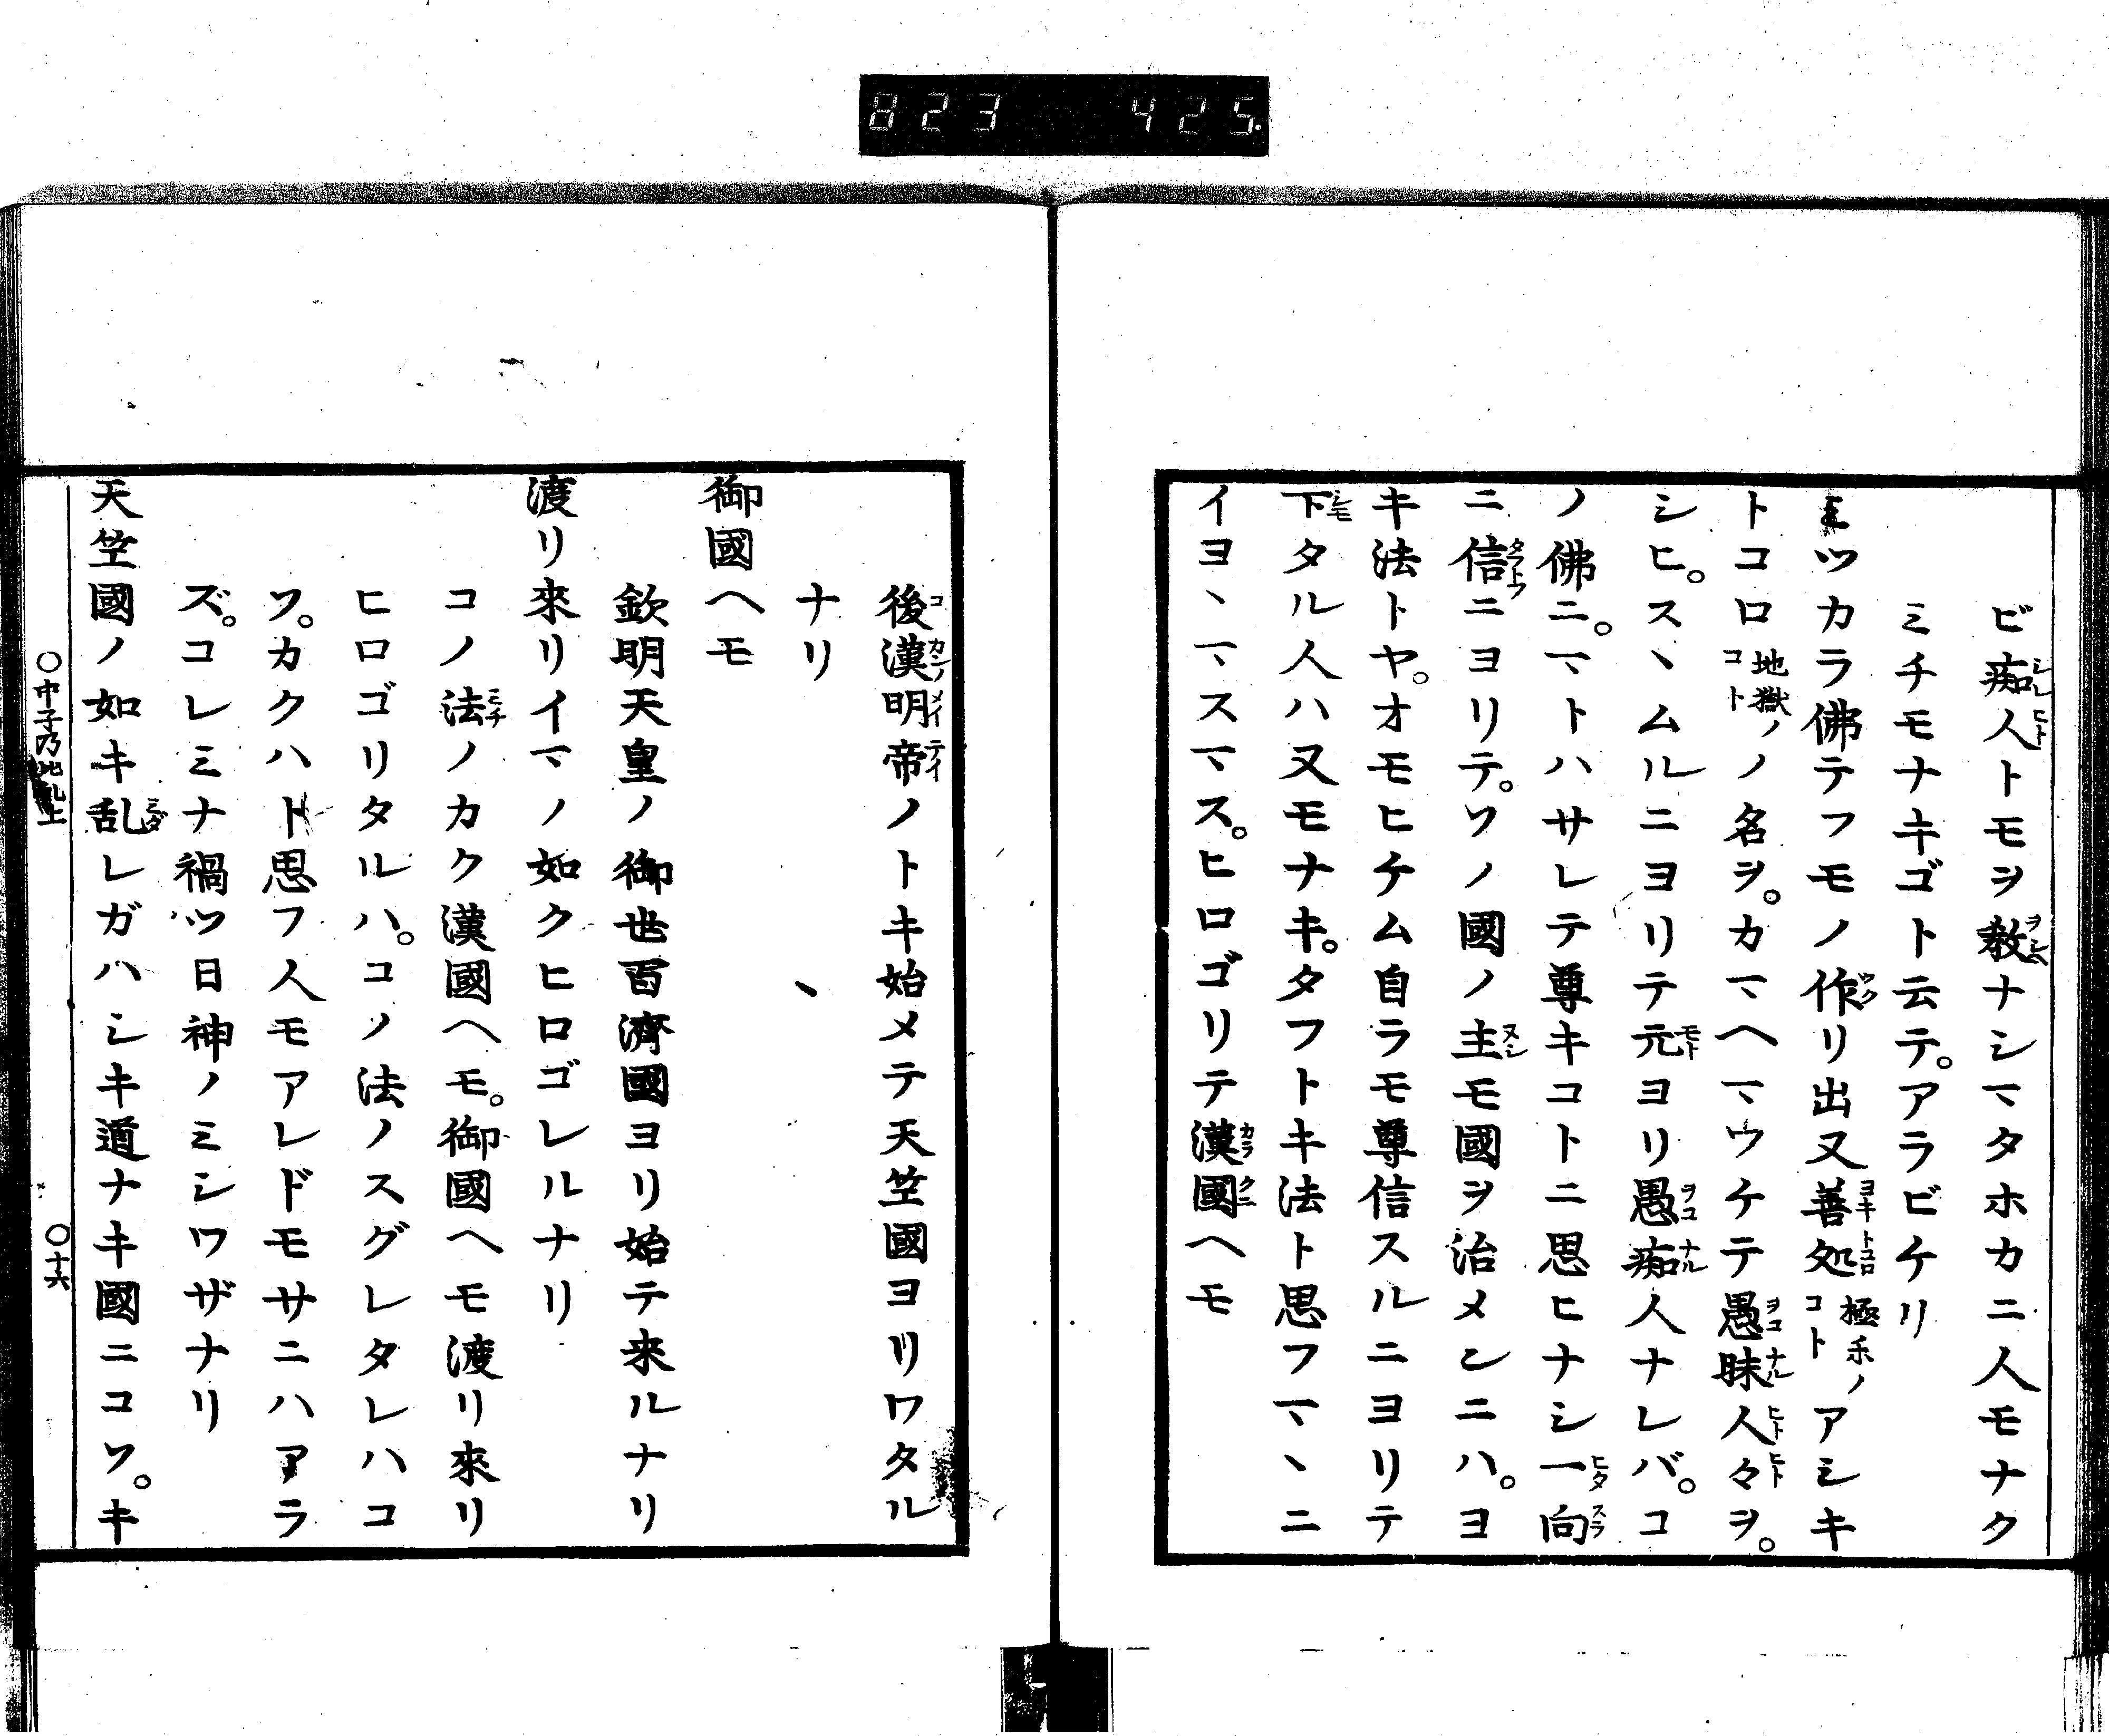 823 425.
ビ痴人トモヲ教ナシマタホカニ人モナク
ミチモナキゴト云テ。アラビケリ
ミツカラ佛テフモノ作リ出又善処極楽ノコトアシキ
トコロ地獄ノコトノ名ヲ。カマヘマウケテ愚昧人々ヲ。
シヒ。スヽムルニヨリテ元ヨリ愚痴人ナレバ。コ
ノ佛ニ。マトハサレテ尊キコトニ思ヒナシ一向
ニ信ニヨリテ。ソノ國ノ主モ國ヲ治メンニハ。ヨ
キ法トヤ。オモヒケム自ラモ尊信スルニヨリテ
下タル人ハ又モナキ。タフトキ法ト思フマヽニ
イヨヽマスマス。ヒロゴリテ漢國ヘモ
後漢明帝ノトキ始メテ天竺國ヨリワタル
ナリ
御國ヘモ
欽明天皇ノ御世百濟國ヨリ始テ来ルナリ
渡リ來リイマノ如クヒロゴレルナリ
コノ法ノカク漢國ヘモ。御國ヘモ渡リ來リ
ヒロゴリタルハ。コノ法ノスグレタレハコ
ソ。カクハト思フ人モアレドモサニハアラ
ズ。コレミナ禍ツ日神ノミシワザナリ
天竺國ノ如キ乱レガハシキ道ナキ國ニコソ。キ
○中子乃 上 ○十六